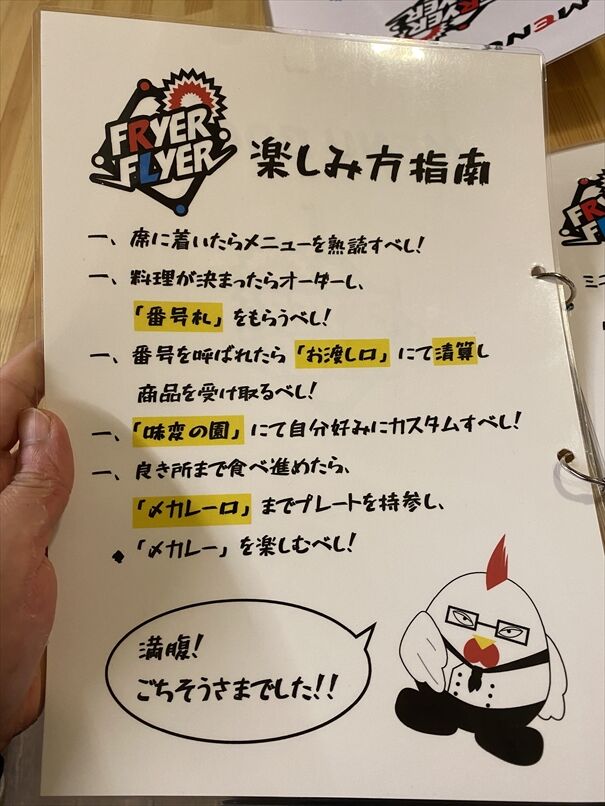 MENU
FRYER
FLYER
FRYER
FLYER
楽しみ方指南
一、席に着いたらメニューを熟読すべし!
一、料理が決まったらオーダーし、
「番号札」をもらうべし!
一、番号を呼ばれたら「お渡し口」にて清算し
商品を受け取るべし!
一、「味変の園」にて自分好みにカスタムすべし!
一、良き所まで食べ進めたら、
「〆カレー口」までプレートを持参し、
◆「〆カレー」を楽しむべし!
満腹!
ごちそうさまでした!!